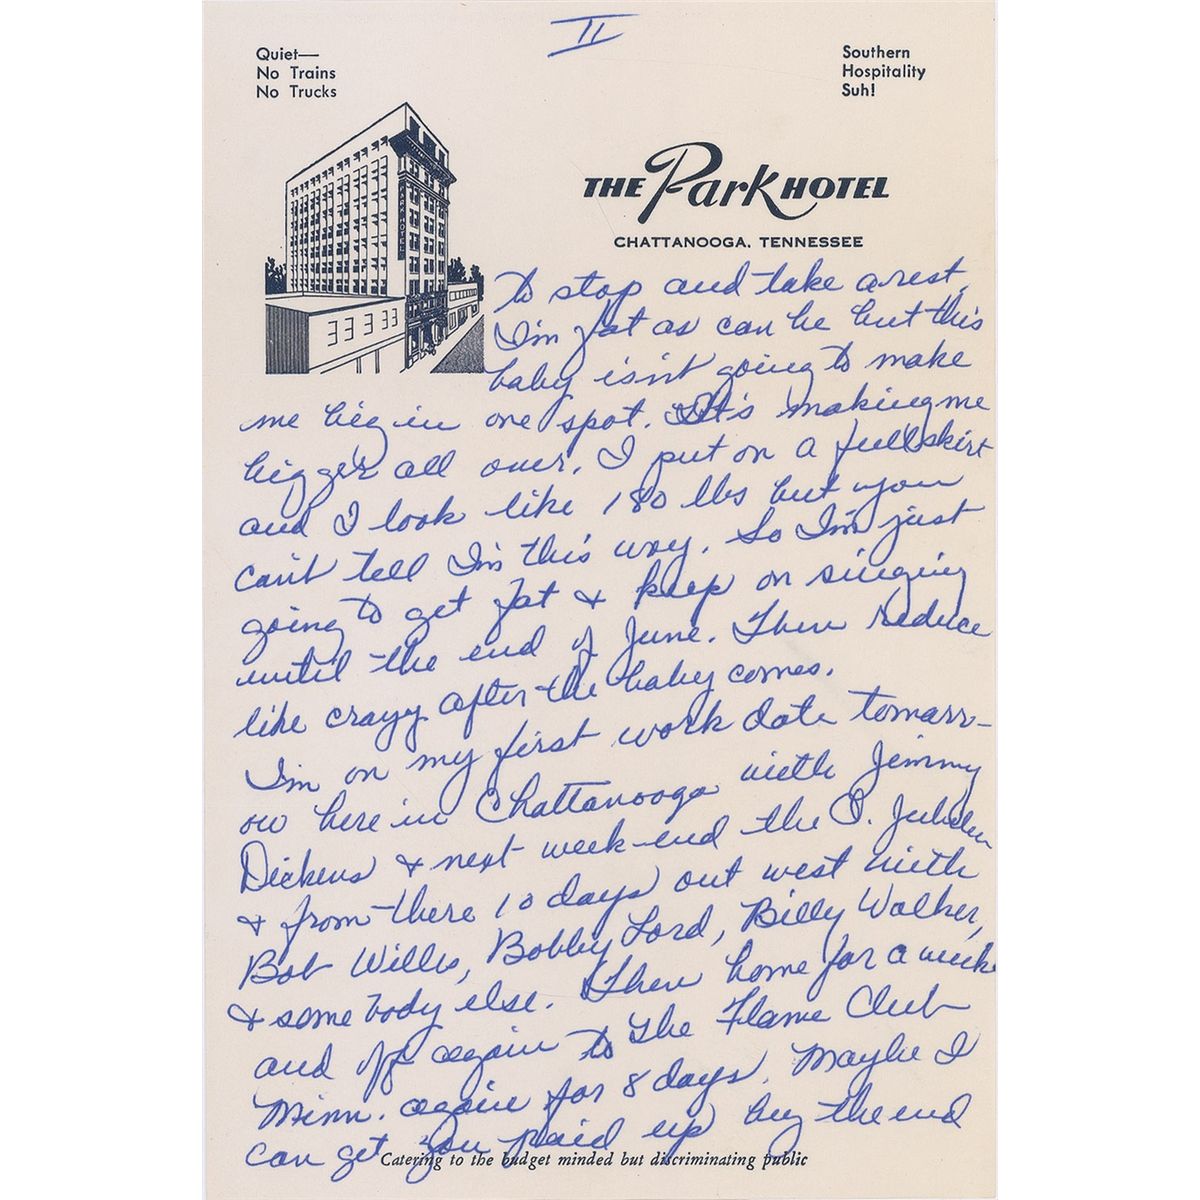 II
Quiet—
No Trains
No Trucks
Southern
Hospitality
Suh!
PARK HOTEL
THE Park HOTEL
CHATTANOOGA, TENNESSEE
to stop and take a rest.
I'm fat as can be but this
baby isn't going to make
me big in one spot. It's making me
bigger all over. I put on a full skirt
and I look like 180 lbs but you
can't tell I'm this way. So I'm just
going to get fat & keep on singing
until the end of June. Then reduce
like crazy after the baby comes.
I'm on my first work date tomarr-
ow here in Chattanooga with Jimmy
Dickens & next week-end the P. Jubilee
& from there 10 days out west with
Bob Wills, Bobby Lord, Billy Walker,
& some body else. Then home for a week
and off again to The Flame Club
Minn. again for 8 days. Maybe I
can get you paid up by the end
Catering to the budget minded but discriminating public